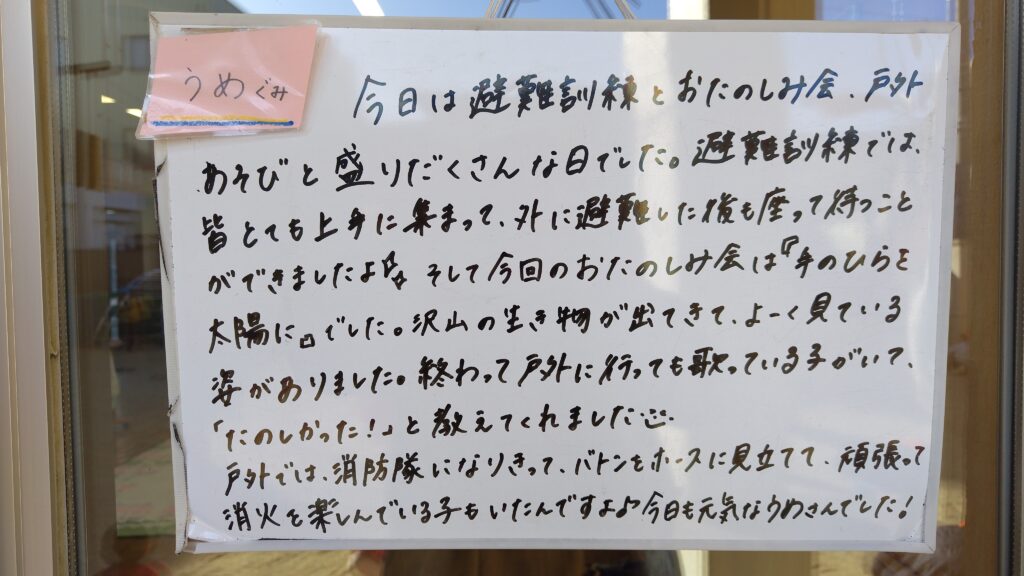 うめぐみ
今日は避難訓練とおたのしみ会、戸外
あそびと盛りだくさんな日でした。避難訓練では、
皆とても上手に集まって、外に避難した後も座って待つこと
ができましたよ!! そして今回のおたのしみ会は『手のひらを
太陽に。』でした。沢山の生き物が出てきて、よーく見ている
姿がありました。終わって戸外に行っても歌っている子がいて、
「たのしかった!」と教えてくれました
戸外では、消防隊になりきって、バトンをホースに見立てて、頑張って
消火を楽しんでいる子もいたんですよ♪今日も元気なうめさんでした!